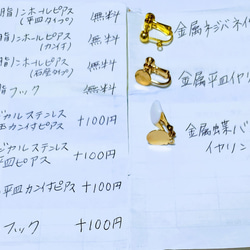 脂ノンホールピアス
(平皿タイプ) 無料
脂ノンホールピアス
(カン付) 無料
脂ノンホールピアス
(石座タイプ) 無料
脂フック 無料
ジカルステンレス
カン付ピアス +100円
ジカルステンレス
平皿ピアス +100円
平皿カン付ピアス +100円
フック +100円
金属ネジバネイ
金属平皿イヤリ
金属蝶バ
イヤリン